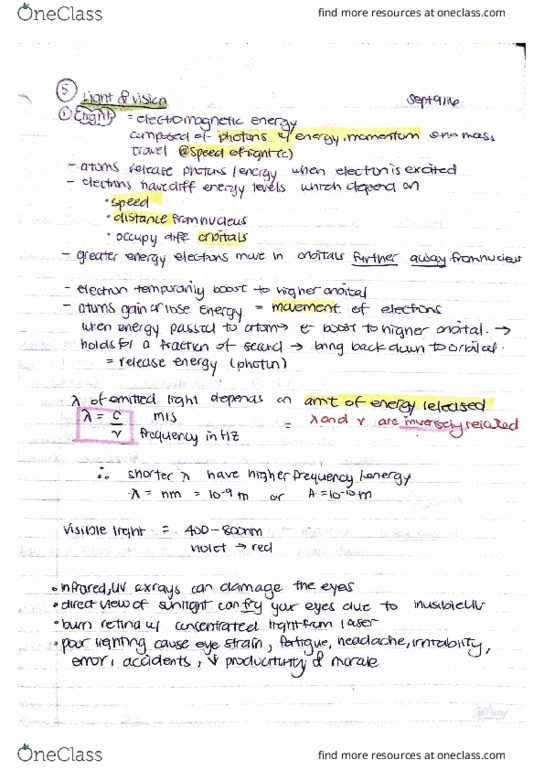 OneClass
find more resources at oneclass.com
5 Light & vision
Sept 9/16
① Light = electromagnetic energy
composed of photons w/ energy, momentum & no mass
travel @ speed of light (c)
- atoms release photons / energy when electron is excited
- electrons have diff energy levels which depend on
• speed
• distance from nucleus
• occupy diff orbitals
- greater energy electrons move in orbitals further away from nucleus
- electron temporarily boost to higher orbital
- atoms gain or lose energy = movement of electrons
when energy passed to atom → e- boost to higher orbital. →
holds for a fraction of second → bring back down to orbital.
= release energy (photon)
λ of emitted light depends on amt of energy released
λ = c m/s = λ and v are inversely related
v frequency in HZ
∴ shorter λ have higher frequency / energy
λ = nm = 10-9 m or A = 10-10 m
visible light = 400 - 800nm
violet → red
• infrared, UV & xrays can damage the eyes
• direct view of sunlight can fry your eyes due to invisible UV
• burn retina w/ concentrated light from laser
• poor lighting cause eye strain, fatigue, headache, irritability,
error, accidents, ↓ productivity & morale
OneClass
find more resources at oneclass.com